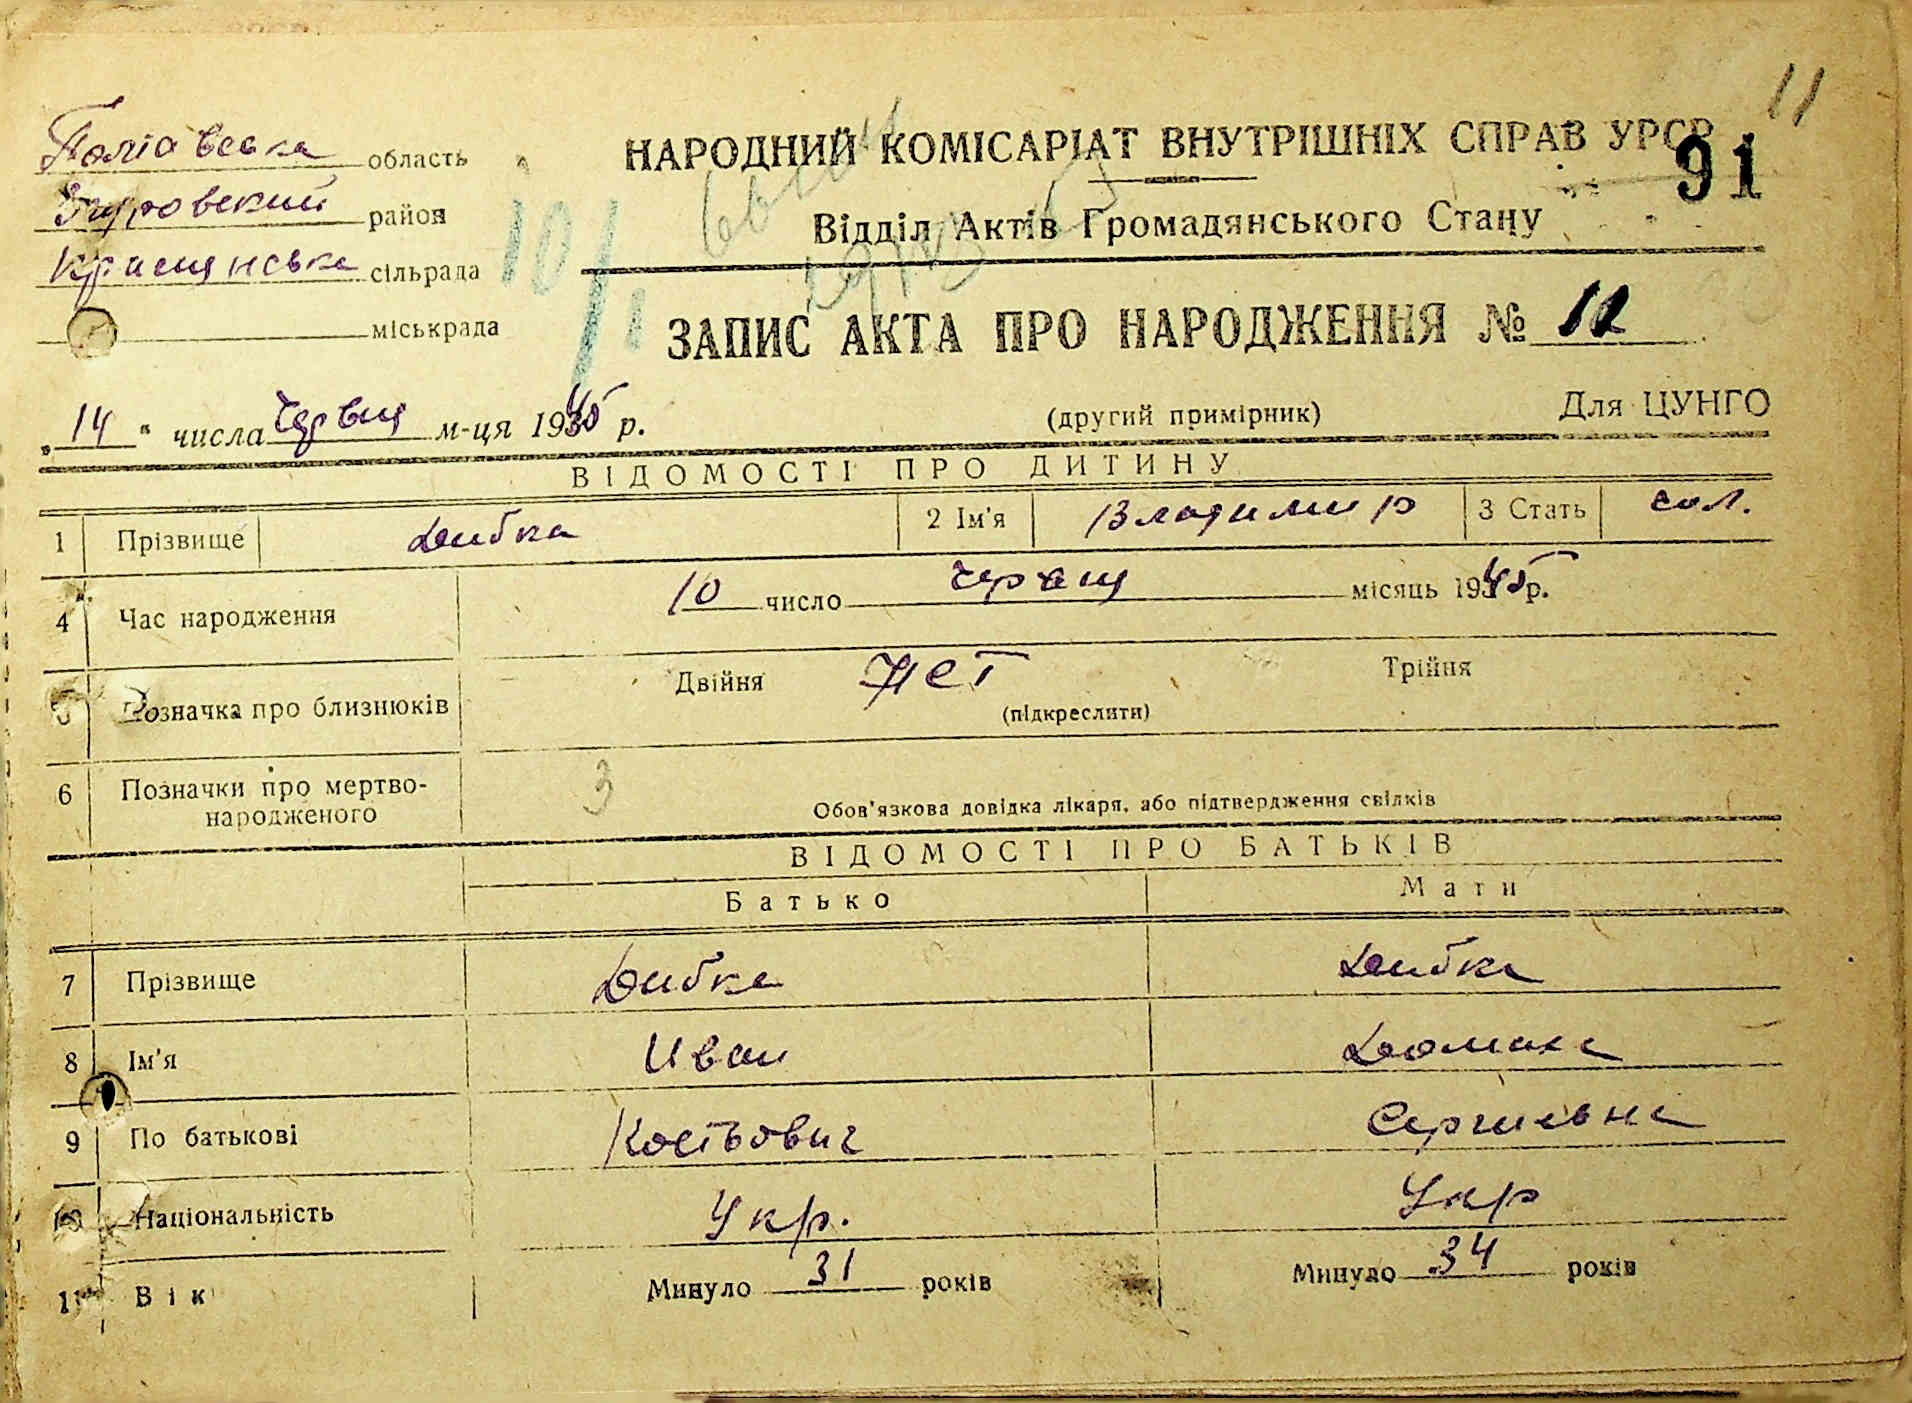 11
Полтавська область
НАРОДНИЙ КОМІСАРІАТ ВНУТРІШНІХ СПРАВ УРСР
91
район
Відділ Актів Громадянського Стану
сільрада
10/
міськрада
ЗАПИС АКТА ПРО НАРОДЖЕННЯ №
„14“ числа червня м-ця 1945 р.
(другий примірник)
Для ЦУНГО
ВІДОМОСТІ ПРО ДИТИНУ
1 Прізвище Дибка 2 Ім'я Владимир 3 Стать
4 Час народження 10 число червня місяць 1945 р.
5 Позначка про близнюків Двійня нет Трійня
(підкреслити)
6 Позначки про мертво-
народженого
3
Обов'язкова довідка лікаря, або підтвердження свілків
ВІДОМОСТІ ПРО БАТЬКІВ
Батько Мати
7 Прізвище Дибка Дибка
8 Ім'я Иван Домаха
9 По батькові Костьович Сергиевна
10 Національність Укр. Укр
11 Вік Минуло 31 років Минуло 34 років